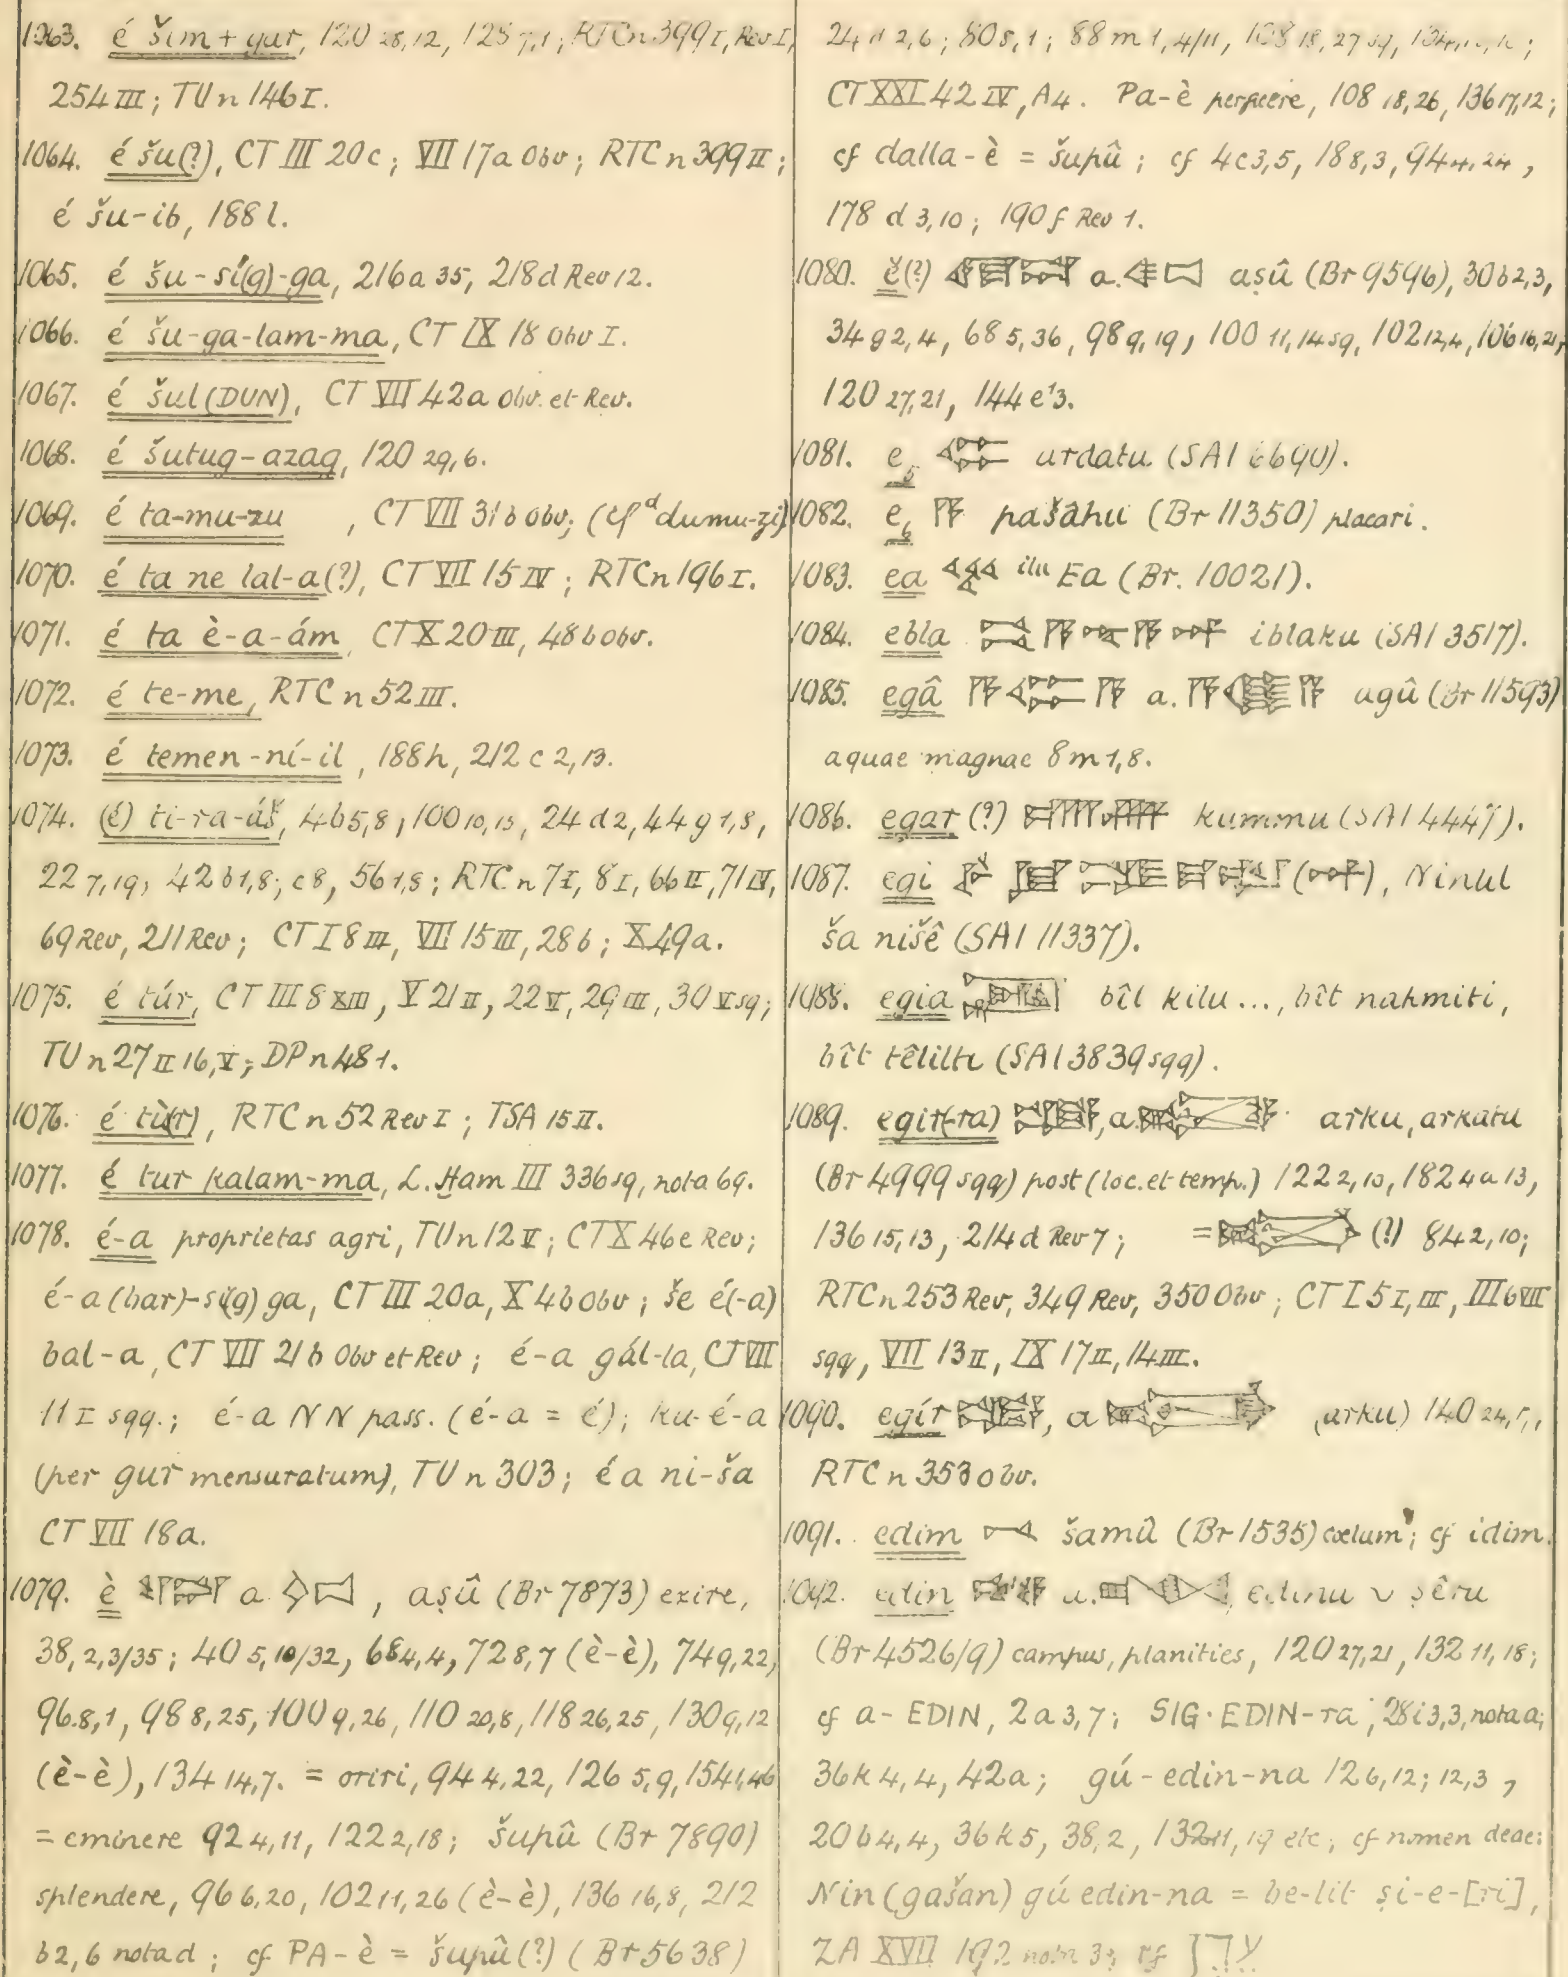 1063. é šim + gar, 120 28,12, 128 7,1; RTC n 399 I, Rev I,
254 III; TU n 146 I.
1064. é šu(?), CT III 20c; VII 17a Obv; RTC n 399 II;
é šu-ib, 188 l.
1065. é šu-si(g)-ga, 216a 35, 218d Rev 12.
1066. é šu-ga-lam-ma, CT IX 18 Obv I.
1067. é šul (DUN), CT VII 42a Obv. et Rev.
1068. é šutug-azag, 120 29,6.
1069. é ta-mu-zu , CT VII 31b Obv; (cf ᵈdumu-zi)
1070. é ta ne lal-a(?), CT VII 15 IV; RTC n 196 I.
1071. é ta è-a-ám, CT X 20 III, 48b Obv.
1072. é te-me, RTC n 52 III.
1073. é temen-ní-il, 188h, 212 c 2,13.
1074. (é) ti-ra-áš, 4b5,8, 100 10,15, 24 d2, 44g 1,8,
22 7,19, 42b1,8; c8, 56 1,8; RTC n 7 I, 8 I, 66 II, 71 IV,
69 Rev, 211 Rev; CT I 8 III, VII 15 III, 28b; X 49a.
1075. é túr, CT III 8 XIII, V 21 II, 22 V, 29 III, 30 V sq;
TU n 27 II 16, V; DP n 481.
1076. é tù(r), RTC n 52 Rev I; TSA 15 II.
1077. é tur kalam-ma, L. Ham III 336 sq, nota 69.
1078. é-a proprietas agri, TU n 12 V; CT X 46e Rev;
é-a (bar)-si(g) ga, CT III 20a, X 4b Obv; še é(-a)
bal-a, CT VII 21 b Obv et Rev; é-a gál-la, CT VII
11 I sqq.; é-a NN pass. (é-a = é); ku-é-a
(per gur mensuratum), TU n 303; é a ni-ša
CT VII 18a.
1079. è a , aṣû (Br 7873) exire,
38, 2,3/35; 40 5,10/32, 68 4,4, 72 8,7 (è-è), 74 9,22,
96.8,1, 98 8,25, 100 9,26, 110 20,8, 118 26,25, 130 9,12
(è-è), 134 14,7. = oriri, 94 4,22, 126 5,9, 154 1,46
= eminere 92 4,11, 122 2,18; šupû (Br 7890)
splendere, 96 6,20, 102 11,26 (è-è), 136 16,8, 212
b2,6 nota d; cf PA-è = šupû(?) (Br 5638)
24 d 2,6; 80 5,1; 88 m 1,4/11, 108 18,27 sq,
CT XXI 42 IV, A4. Pa-è perficere, 108 18,26, 136 17,12;
cf dalla-è = šupû; cf 4c3,5, 18 8,3, 94 4,24,
178 d 3,10; 190 f Rev 1.
1080. ě(?) a. aṣû (Br 9596), 30b2,3,
34 g2,4, 68 5,36, 98 9,19, 100 11,14 sq, 102 12,4, 106 16,21,
120 27,21, 144 e'3.
1081. e₅ urdatu (SAI 6690).
1082. e₆ pašâhu (Br 11350) placari.
1083. ea ilu Ea (Br. 10021).
1084. ebla iblaku (SAI 3517).
1085. egâ a. agû (Br 11593)
aquae magnae 8m 1,8.
1086. egar (?) kummu (SAI 4447).
1087. egi ( ), Ninul
ša nišê (SAI 11337).
1088. egia bît kilu..., bît nahmiti,
bît têlilti (SAI 3839 sqq).
1089. egir(ra) , a. arku, arkatu
(Br 4999 sqq) post (loc. et temp.) 122 2,10, 182 4a 13,
136 15,13, 214 d Rev 7; = (?) 84 2,10;
RTC n 253 Rev, 349 Rev, 350 Obv; CT I 5 I, III, III 6 VII
sqq, VII 13 II, IX 17 II, 14 III.
1090. egír , a (arku) 140 24,
RTC n 353 Obv.
1091. edim šamû (Br 1535) coelum; cf idim.
1092. edin a. edinu v ṣêru
(Br 4526/9) campus, planities, 120 27,21, 132 11,18;
cf a-EDIN, 2a 3,7; SIG·EDIN-ra, 28 i 3,3, nota a;
36 k 4,4, 42a; gú-edin-na 12 6,12; 12,3,
20b4,4, 36 k 5, 38, 2, 132 11,19 etc; cf nomen deae:
Nin (gašan) gú edin-na = be-lit ṣi-e-[ri],
ZA XVII 192 nota 3; cf